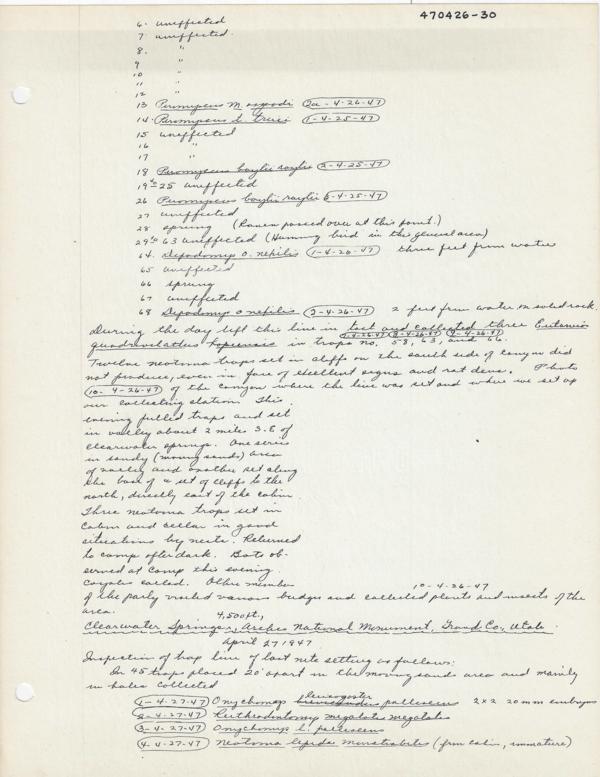 470426-30
6. uneffected
7 uneffected.
8. "
9 "
10 "
11 "
12 "
13 Peromyscus m. osgoodi (2a-4-26-47)
14. Peromyscus t. truei (1-4-25-47)
15 uneffected
16 "
17 "
18 Peromyscus boylii rowleyi (2-4-25-47)
19 to 25 uneffected
26 Peromyscus boylii rowleyi (5-4-25-47)
27 uneffected
28 sprung (Raven passed over at this point.)
29 to 63 uneffected (Humming bird in the general area)
64. Dipodomys o. nexilis (1-4-26-47) three feet from water
65 uneffected
66 sprung
67 uneffected
68 Dipodomys o nexilis (2-4-26-47) 2 feet from water in solid rock.
During the day left this line in tact and collected three Eutamias
quadrivittatus hopiensis in traps no. 58, 63, and 66.
Twelve neotoma traps set in cliffs on the south side of canyon did
not produce, even in face of excellent signs and rat dens. Photo
(10-4-26-47) of the canyon where the line was set and where we set up
our collecting station. This
evening pulled traps and set
in valley about 2 miles S.E. of
Clearwater springs. One series
in sandy (moving sands) area
of valley and another set along
the base of a set of cliffs to the
north, directly east of the cabin.
Three neotoma traps set in
cabin and cellar in good
situations by nests. Returned
to camp after dark. Bats ob-
served at camp this evening.
Coyotes called. Other members
10-4-26-47
of the party visited various bridges and collected plants and insects of the
area.
4,500 ft.,
Clearwater Springs, Arches National Monument, Grand Co., Utah
April 27 1947
Inspection of trap line of last nite setting as follows:
In 45 traps placed 20' apart in the moving sands area and mainly
in holes collected
(1-4-27-47) Onychomys leucogaster pallescens 2x2 20mm embryos
(2-4-27-47) Reithrodontomys megalotis megalotis
(3-4-27-47) Onychomys l. pallescens
(4-4-27-47) Neotoma lepida monstrabilis (from cabin, immature)